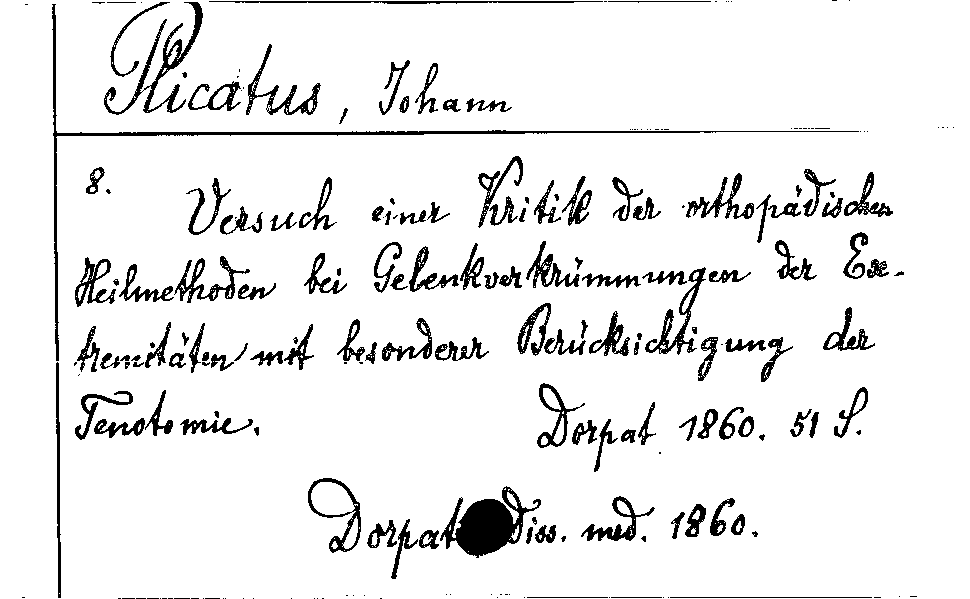 Plicatus, Johann
8.
Versuch einer Kritik der orthopädischen
Heilmethoden bei Gelenkverkrümmungen der Ex-
tremitäten mit besonderer Berücksichtigung der
Tenotomie. Dorpat 1860. 51 S.
Dorpat Diss. med. 1860.